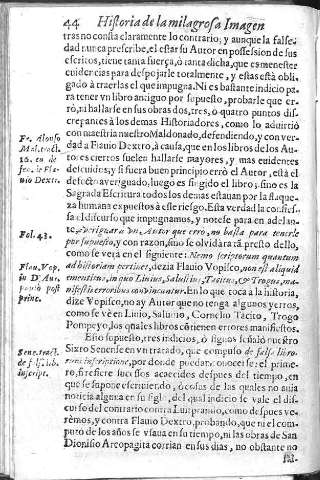 44 Historia de la milagrosa Imagen
tras no consta claramente lo contrario; y aunque la false-
dad nunca prescribe, el estar su Autor en possession de sus
escritos, tiene tanta fuerça, ò tanta dicha, que es menester
euidencias para despojarle totalmente, y estas està obli-
gado à traerlas el que impugna. Ni es bastante indicio pa-
ra tener vn libro antiguo por supuesto, probarle que er-
rò, ni hallarse en sus obras dos, tres, ò quatro puntos dis-
crepantes à los demas Historiadores, como lo aduirtiò
con maestria nuestro Maldonado, defendiendo, y con ver-
dad a Flauio Dextro, à causa, que en los libros de los Au-
tores ciertos suelen hallarse mayores, y mas euidentes
descuidos, y si fuera buen principio errò el Autor, està el
defecto aueriguado, luego es fingido el libro, sino es la
Sagrada Escritura todos los demas estauan por la flaque-
za humana expuestos à esse riesgo. Esta verdad la confies-
sa el discurso que impugnamos, y notese para en adelan-
te, Aueriguar à vn Autor que errò, no basta para tenerle
por supuesto, y con razon, sino se oluidàra tã presto dello,
como se verà en el siguiente: Nemo scriptorum quantum
ad historiam pertinet, dezia Flauio Vopisco, non est aliquid
ementitus, in quo Liuius, Salustius, Tacitus, & Trogus, ma-
nifestis erroribus conuincantur. En lo que toca à la historia,
dize Vopisco, no ay Autor que no tenga algunos yerros,
como se vè en Liuio, Salustio, Cornelio Tacito, Trogo
Pompeyo, los quales libros cõtienen errores manifiestos.
Esto supuesto, tres indicios, ò signos señalò nuestro
Sixto Senense en vn tratado, que compuso de falsa libro-
rum inscriptione, por donde puedan conocerse: el prime-
ro, si refiere sucessos acaecidos despues del tiempo, en
que se supone escriuiendo, ò cosas de las quales no auia
noticia alguna en su siglo, del qual indicio se vale el dis-
curso del contrario contra Luitprando, como despues ve-
rèmos, y contra Flauio Dextro, probando, que ni el com-
puto de los años se vsaua en su tiempo, ni las obras de San
Dionisio Areopagita corrian en sus dias, no obstante no
Fr. Alonso
Mal. tract.
de Fla-
uio Dextro.
Fol. 43.
Flau. Vop.
in D. Au-
post
princ.
Sene. tract.
de fals. lib.
inscript.